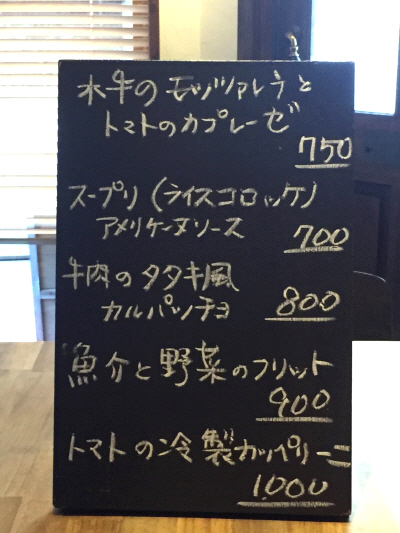 水牛のモッツァレラと
トマトのカプレーゼ
750
スープリ(ライスコロッケ)
アメリケーヌソース
700
牛肉のタタキ風
カルパッチョ
800
魚介と野菜のフリット
900
トマトの冷製カッペリーニ
1.000